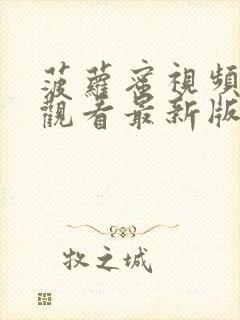 菠蘿蜜視頻
觀看最新版
牧之城